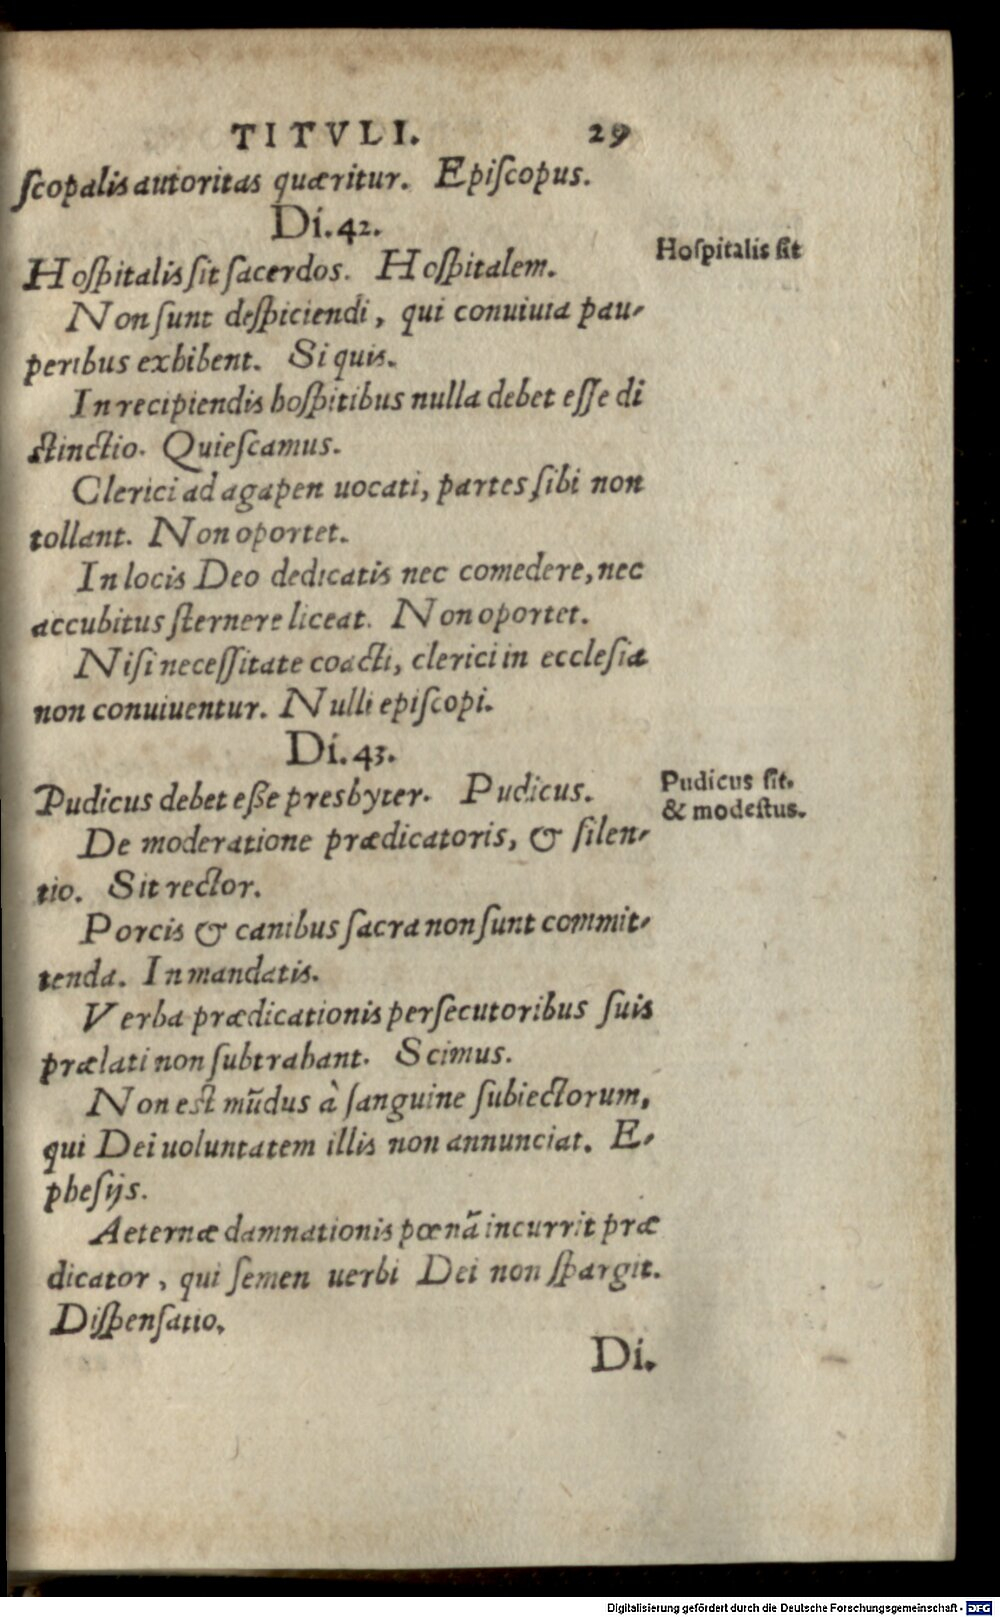 TITVLI. 29
ſcopalis autoritas quæritur. Epiſcopus.
Di. 42.
Hoſpitalis ſit
Hoſpitalis ſit ſacerdos. Hoſpitalem.
Non ſunt deſpiciendi, qui conuiuia pau-
peribus exhibent. Si quis.
In recipiendis hoſpitibus nulla debet eſſe di
ſtinctio. Quieſcamus.
Clerici ad agapen uocati, partes ſibi non
tollant. Non oportet.
In locis Deo dedicatis nec comedere, nec
accubitus ſternere liceat. Non oportet.
Niſi neceſſitate coacti, clerici in eccleſia
non conuiuentur. Nulli epiſcopi.
Di. 43.
Pudicus ſit.
& modeſtus.
Pudicus debet eße presbyter. Pudicus.
De moderatione prædicatoris, & ſilen-
tio. Sit rector.
Porcis & canibus ſacra non ſunt commit-
tenda. In mandatis.
Verba prædicationis perſecutoribus ſuis
prælati non ſubtrahant. Scimus.
Non eſt mũdus à ſanguine ſubiectorum,
qui Dei uoluntatem illis non annunciat. E-
pheſijs.
Aeternæ damnationis pœnã incurrit præ
dicator, qui ſemen uerbi Dei non ſpargit.
Diſpenſatio.
Di.
Digitalisierung gefördert durch die Deutsche Forschungsgemeinschaft - DFG